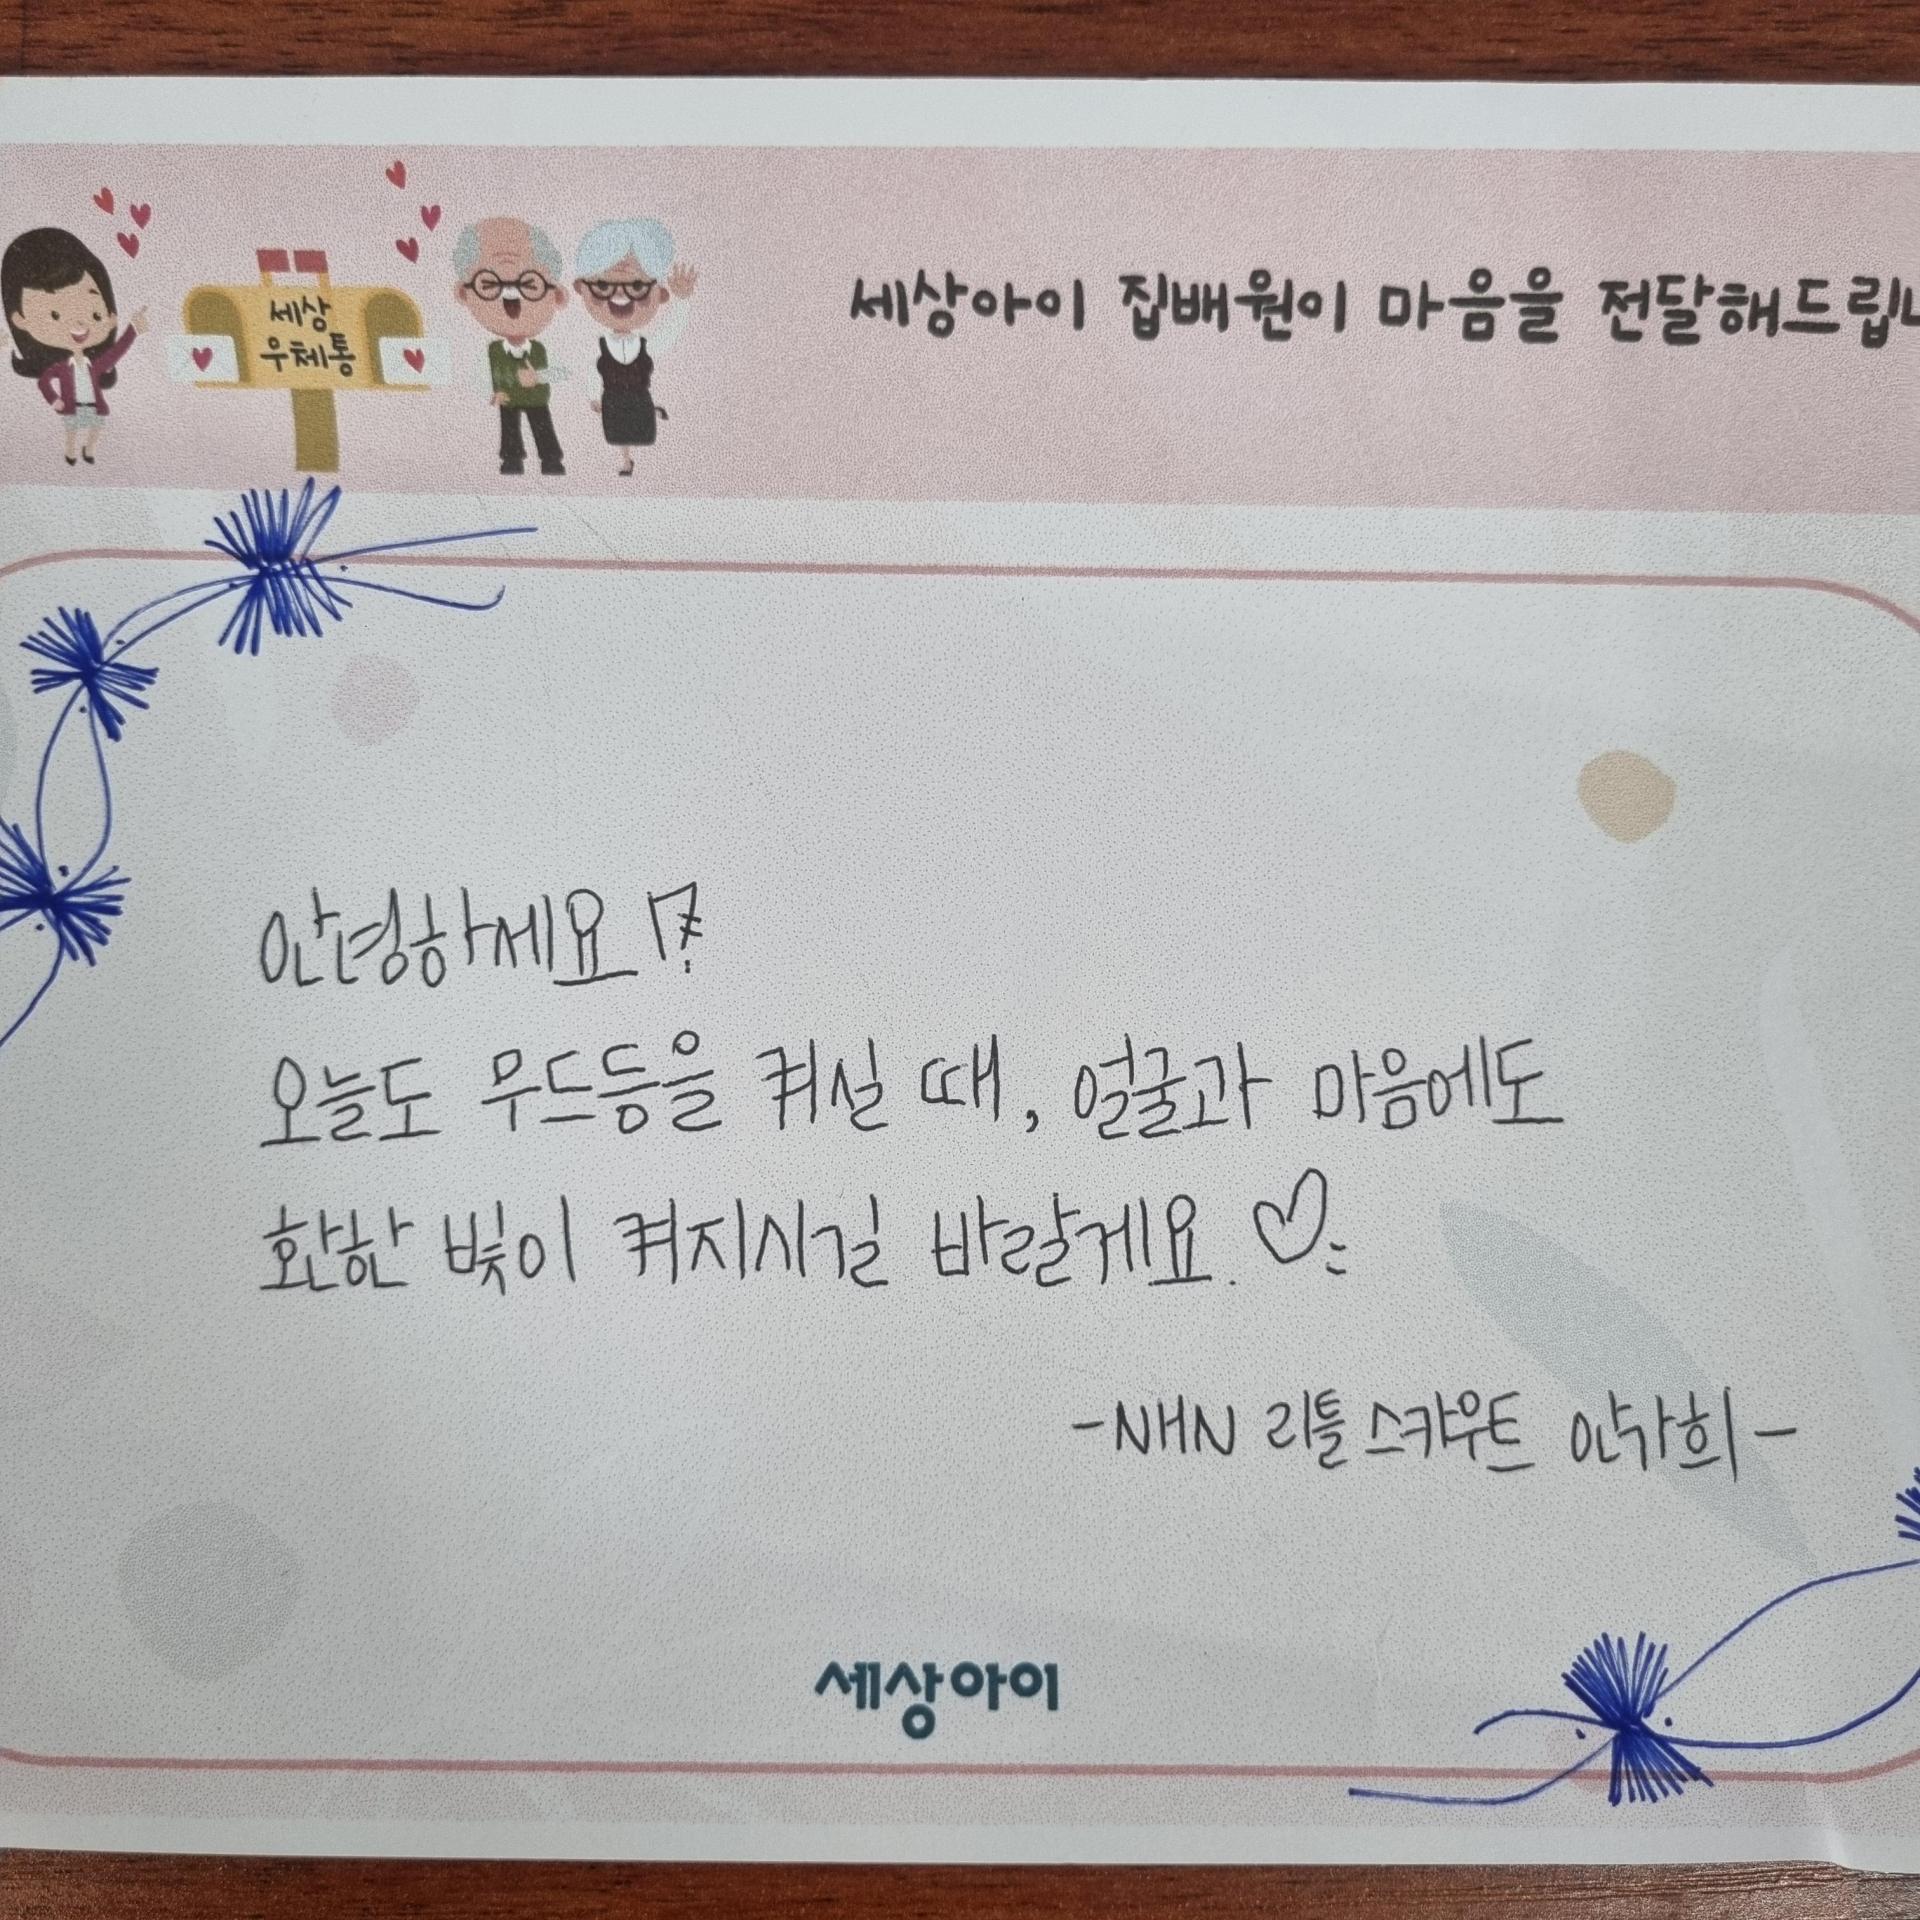 세상
우체통
세상아이 집배원이 마음을 전달해드립니
안녕하세요!
오늘도 무드등을 켜실 때, 얼굴과 마음에도
환한 빛이 켜지시길 바랄게요. ♡
-NHN 리틀스카우트 안가희-
세상아이